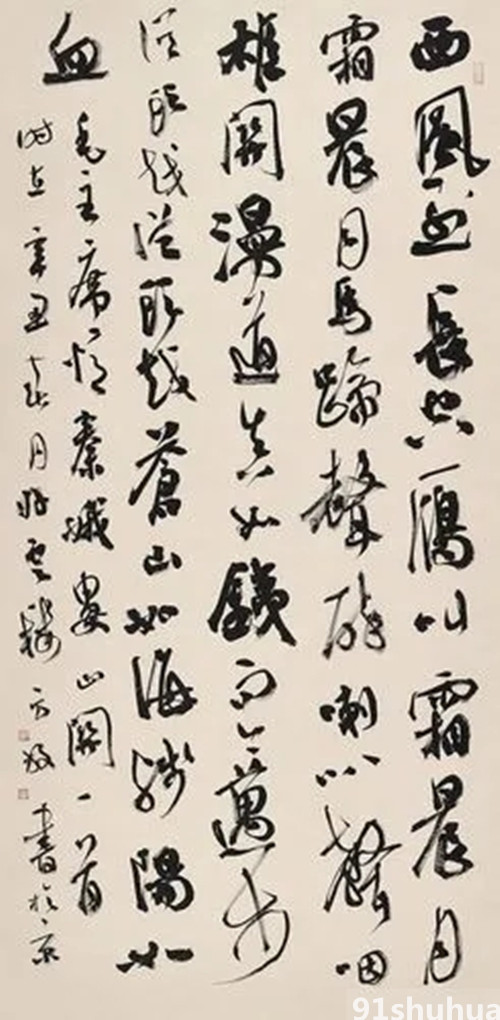 西風烈長空鴈叫霜晨月
霜晨月馬蹄聲碎喇叭聲咽
雄關漫道真如鐵而今邁步
從頭越從頭越蒼山如海殘陽如
血
毛主席憶秦娥婁山關一首
時在辛丑 月 雲樓 書於京
91shuhua